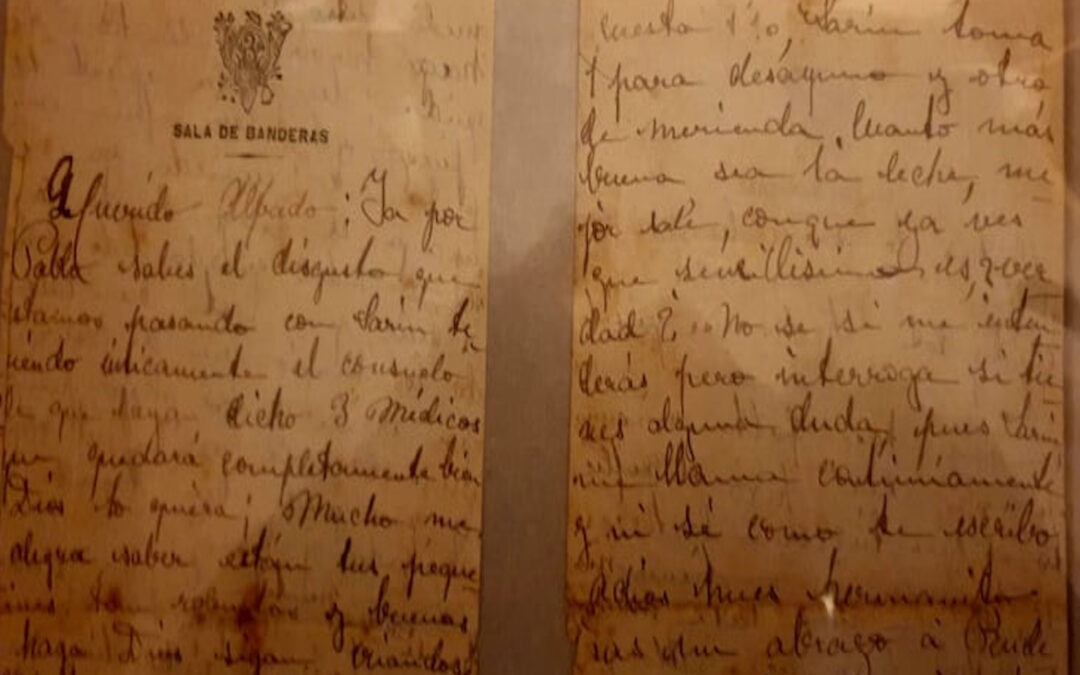 SALA DE BANDERAS
Querido Alfredo; Ya por
Pabla sabes el disgusto que
estamos pasando con Sarin te
niendo únicamente el consuelo
de que haya dicho 3 Médicos
que quedará completamente bien
Dios lo quiera; Mucho me
alegra saber están tus peque
ños tan robustos y buenos
haga Dios sigan criandose
cuesta 1'50, Sarin toma
1 para desayuno y otra
de merienda, Cuanto más
buena sea la leche, me
jor sale, conque ya ves
que sencillisimo es, ¿ver
dad? No se si me enten
derás pero interroga si tie
nes alguna duda, pues Sarin
me llama continuamente
y ni sé como te escribo,
Adios pues hermanito
un abrazo á